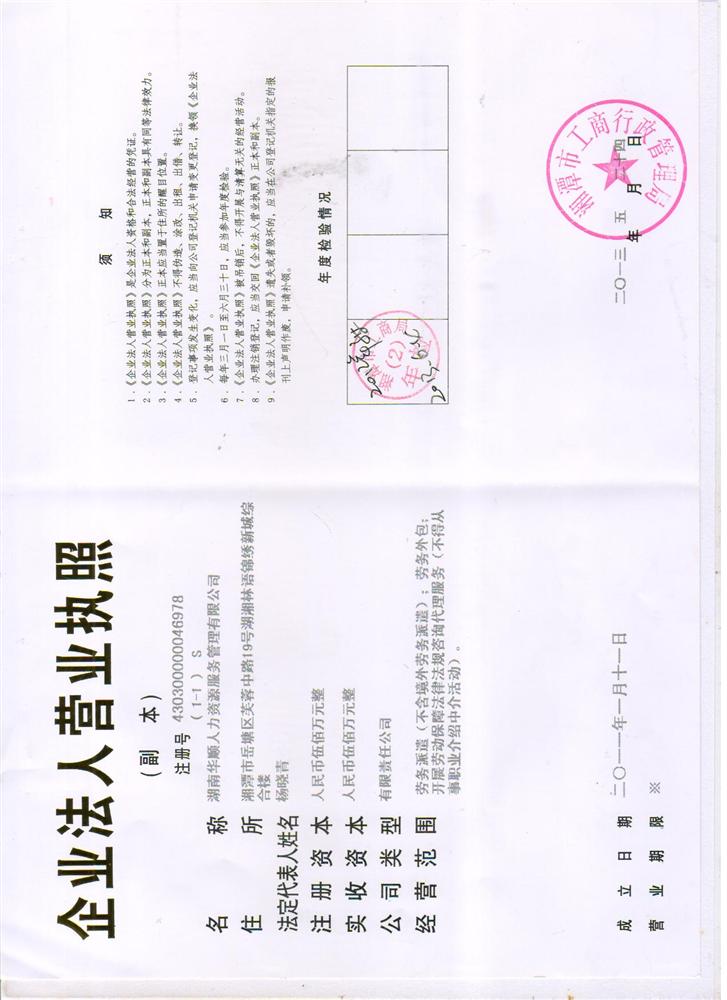 企业法人营业执照
（副 本）
注册号 430300000046978
（1-1） S
名 称 湖南华顺人力资源服务管理有限公司
住 所 湘潭市岳塘区芙蓉中路19号湖湘林语锦绣新城综
合楼
法定代表人姓名 杨晓青
注 册 资 本 人民币伍佰万元整
实 收 资 本 人民币伍佰万元整
公 司 类 型 有限责任公司
经 营 范 围 劳务派遣（不含境外劳务派遣）；劳务外包；
开展劳动保障法律法规咨询代理服务（不得从
事职业介绍中介活动）。
成 立 日 期 二〇一一年一月十一日
营 业 期 限 ※
须 知
1．《企业法人营业执照》是企业法人资格和合法经营的凭证。
2．《企业法人营业执照》分为正本和副本，正本和副本具有同等法律效力。
3．《企业法人营业执照》正本应当置于住所的醒目位置。
4．《企业法人营业执照》不得伪造、涂改、出租、出借、转让。
5．登记事项发生变化，应当向公司登记机关申请变更登记，换领《企业法
人营业执照》。
6．每年三月一日至六月三十日，应当参加年度检验。
7．《企业法人营业执照》被吊销后，不得开展与清算无关的经营活动。
8．办理注销登记，应当交回《企业法人营业执照》正本和副本。
9．《企业法人营业执照》遗失或者毁坏的，应当在公司登记机关指定的报
刊上声明作废，申请补领。
年度检验情况
（2）
年检
湘潭市工商行政管理局
二〇一三 年 五 月 二十四 日